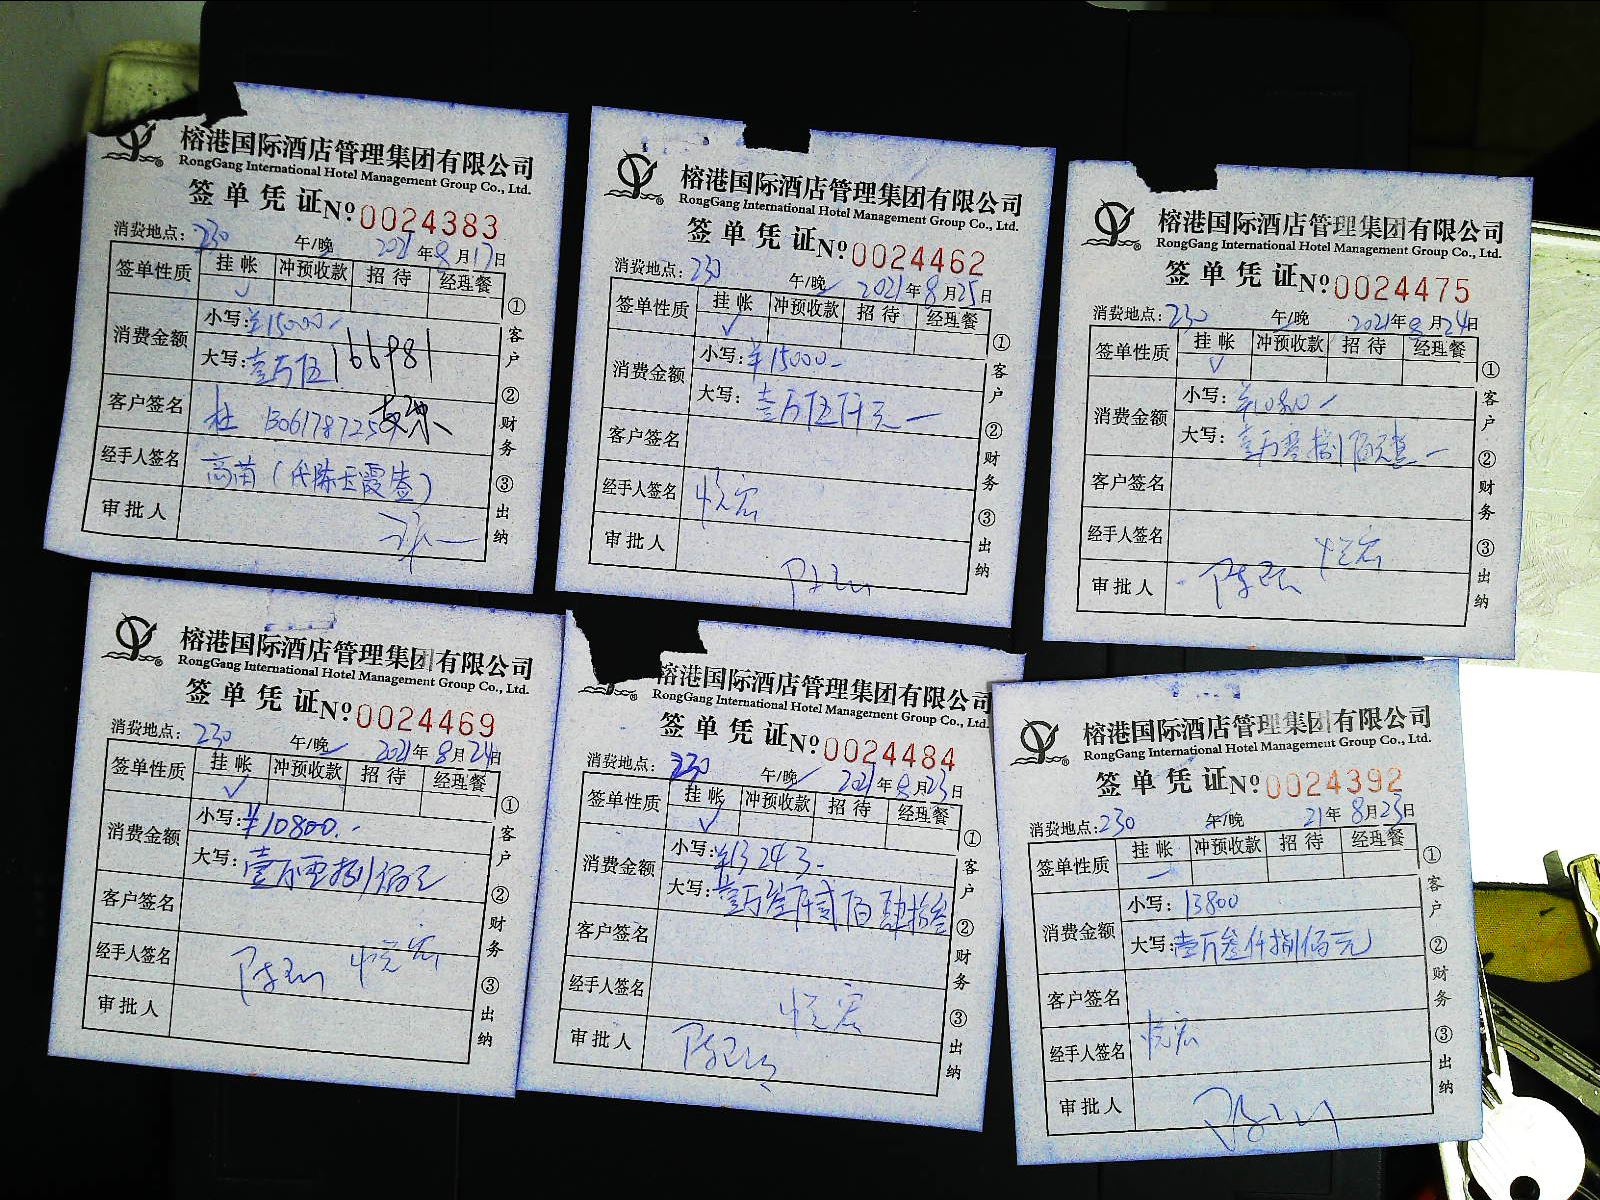 榕港国际酒店管理集团有限公司
RongGang International Hotel Management Group Co., Ltd.
签单凭证 №0024383
消费地点：230 午/晚 2021年8月17日
签单性质 挂帐 冲预收款 招待 经理餐
✓
消费金额 小写：¥15000-
大写：壹万伍 166981
客户签名 杜
经手人签名 高苗（代陈玉霞签）
审批人
①客户 ②财务 ③出纳
榕港国际酒店管理集团有限公司
RongGang International Hotel Management Group Co., Ltd.
签单凭证 №0024462
消费地点：230 午/晚 2021年8月25日
签单性质 挂帐 冲预收款 招待 经理餐
✓
消费金额 小写：¥15000-
大写：壹万伍仟元一
客户签名
经手人签名 悦宏
审批人
①客户 ②财务 ③出纳
榕港国际酒店管理集团有限公司
RongGang International Hotel Management Group Co., Ltd.
签单凭证 №0024475
消费地点：230 午/晚 2021年8月24日
签单性质 挂帐 冲预收款 招待 经理餐
✓
消费金额 小写：¥10800-
大写：壹万零捌佰元整一
客户签名
经手人签名 悦宏
审批人
①客户 ②财务 ③出纳
榕港国际酒店管理集团有限公司
RongGang International Hotel Management Group Co., Ltd.
签单凭证 №0024469
消费地点：230 午/晚 2021年8月24日
签单性质 挂帐 冲预收款 招待 经理餐
✓
消费金额 小写：¥10800.-
大写：壹万零捌佰元
客户签名
经手人签名 悦宏
审批人
①客户 ②财务 ③出纳
榕港国际酒店管理集团有限公司
RongGang International Hotel Management Group Co., Ltd.
签单凭证 №0024484
消费地点：230 午/晚 2021年8月23日
签单性质 挂帐 冲预收款 招待 经理餐
✓
消费金额 小写：¥13243-
大写：壹万叁仟贰佰肆拾叁
客户签名
经手人签名 悦宏
审批人
①客户 ②财务 ③出纳
榕港国际酒店管理集团有限公司
RongGang International Hotel Management Group Co., Ltd.
签单凭证 №0024392
消费地点：230 午/晚 21年8月23日
签单性质 挂帐 冲预收款 招待 经理餐
消费金额 小写：13800
大写：壹万叁仟捌佰元
客户签名
经手人签名 悦宏
审批人
①客户 ②财务 ③出纳